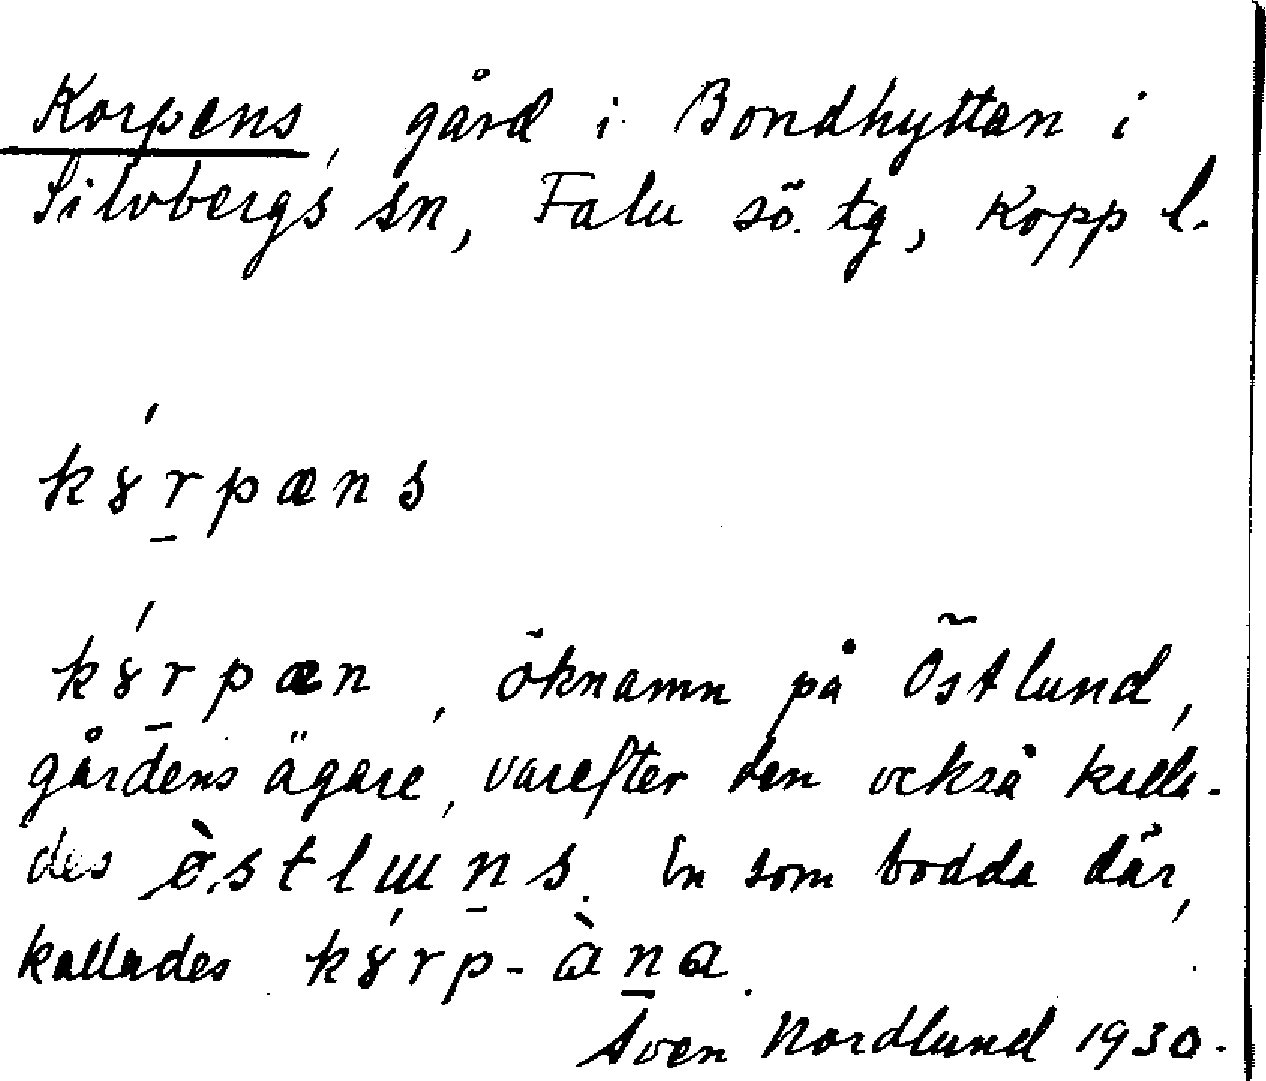 Korpens, gård i Bondhyttan i
Silvbergs sn, Falu sö. tg, Kopp l.
kɤ́r̲pæns
kɤ́r̲pæn, öknamn på Östlund,
gårdens ägare, varefter den också kalla-
des ö̀stlɯn̲s. En som bodde där,
kallades kɤ́rp-àn̲a.
Sven Nordlund 1930.